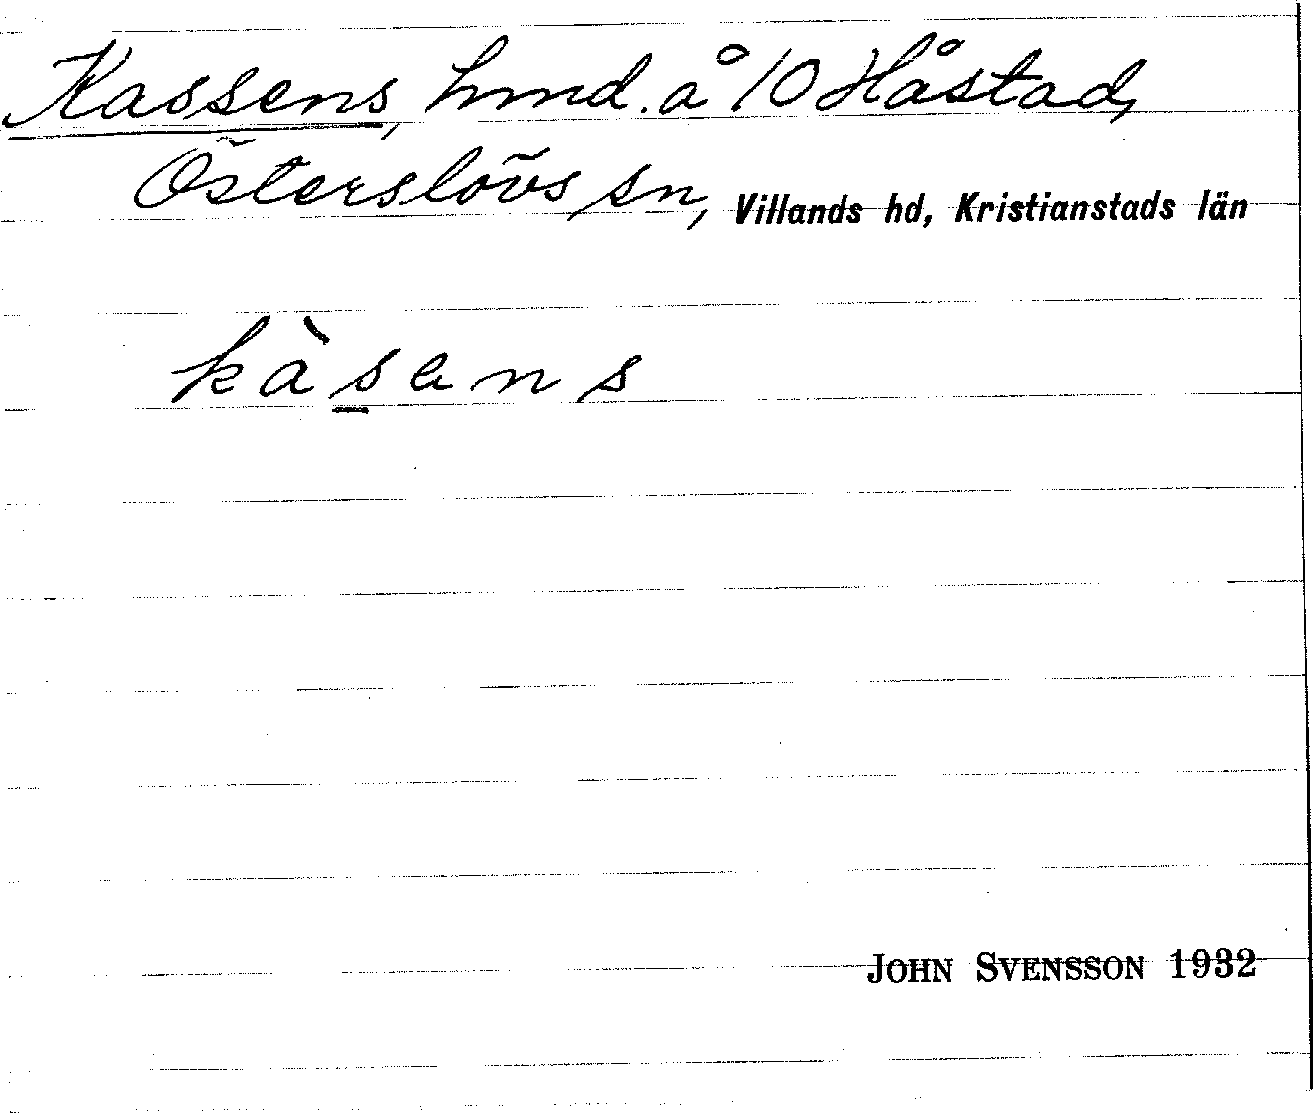 Kassens, hmd. å 10 Håstad,
Österslövs sn, Villands hd, Kristianstads län
kàsans
JOHN SVENSSON 1932